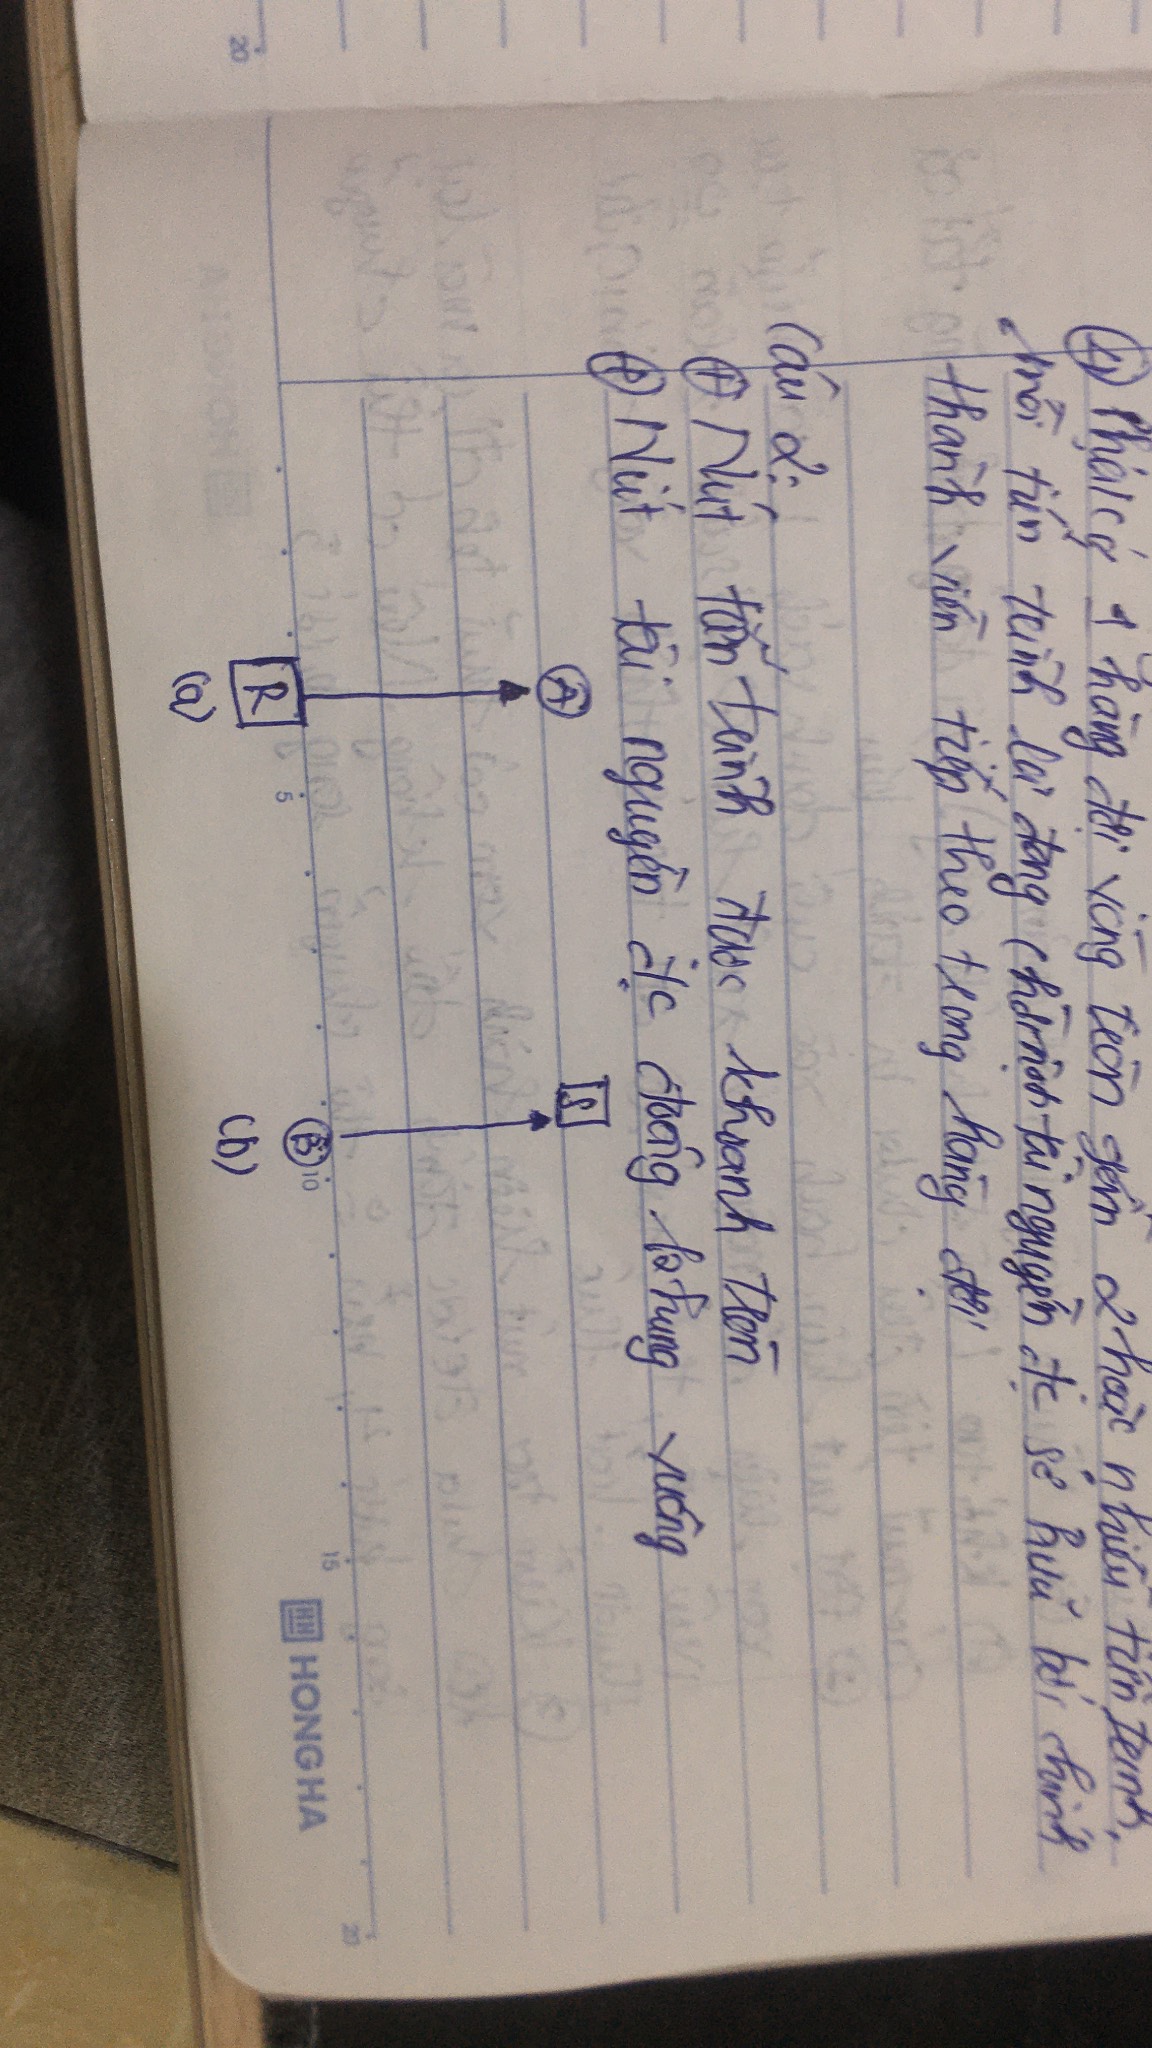 ④ Phải có 1 hàng đợi vòng tròn gồm 2 hoặc nhiều tiến trình,
mỗi tiến trình lại đang chờ một tài nguyên đc sở hữu bởi chính
thành viên tiếp theo trong hàng đợi
Câu 2:
⊕ Nút tiến trình được khoanh tròn
⊕ Nút tài nguyên đc đóng khung vuông
A S
R B
5 10 15 20
(a) (b)
HH HONG HA
20